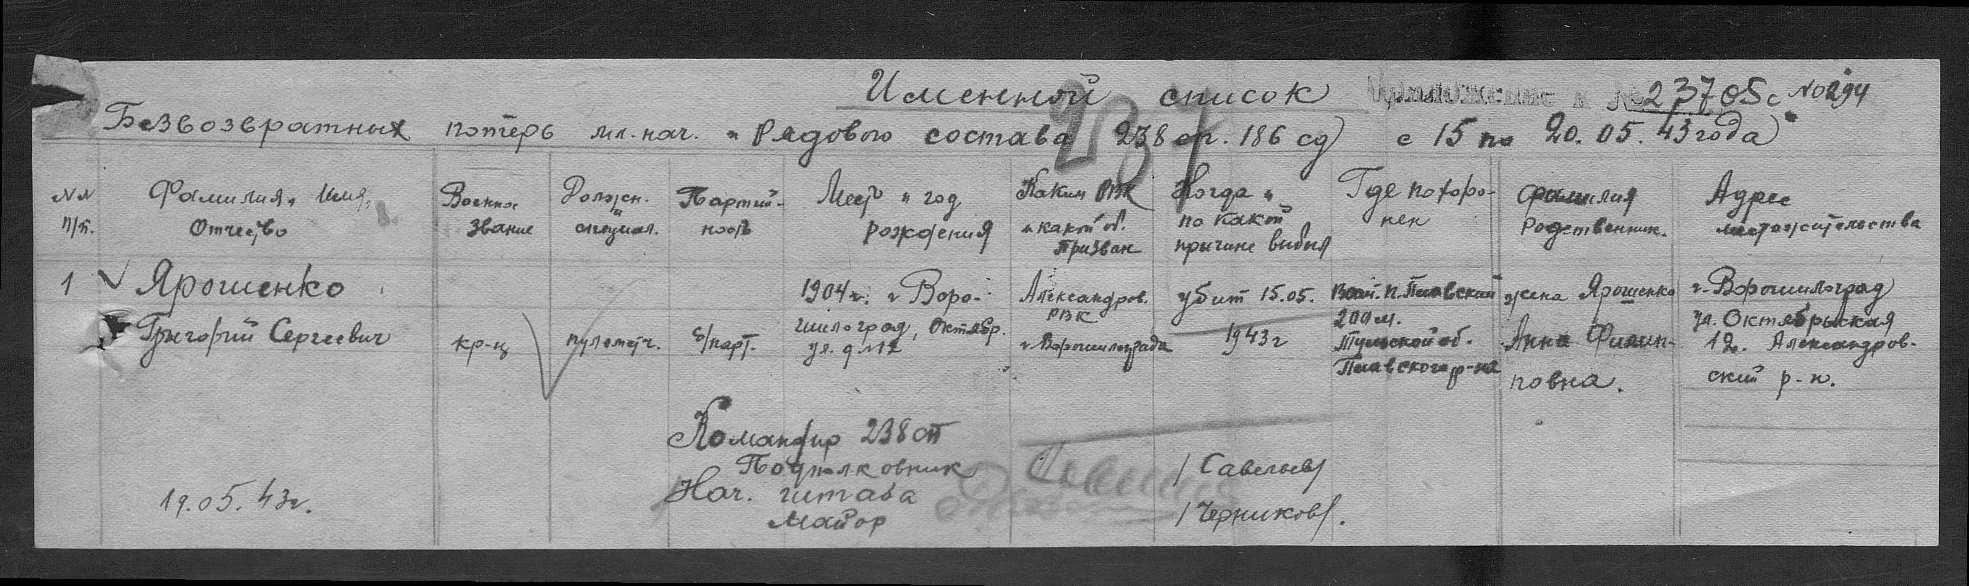 Именной список Приложение к № 23705с №0294
Безвозвратных потерь мл. нач. и рядового состава 238 сп. 186 сд с 15 по 20.05.43 года
№№ п/п.
Фамилия, Имя, Отчество
Военное звание
Должн. и специал.
Партийность
Место и год рождения
Каким РВК и какой об. призван
Когда и по какой причине выбыл
Где похоронен
Фамилия родственник.
Адрес местожительства
1
Ярошенко
Григорий Сергеевич
кр-ц
пулеметч.
б/парт.
1904 г. г Воро-
шилоград, Октябр.
ул. д №12
Александров.
РВК
г. Ворошилограда
убит 15.05.
1943 г
п. Плавский
200 м.
Тульской об.
Плавского р-на
жена Ярошенко
Анна Филип-
повна.
г. Ворошилоград
ул. Октябрьская
12. Александров-
ский р-н.
Командир 238 сп
Подполковник /Савельев/
Нач. штаба
Майор /Черников/.
19.05.43г.